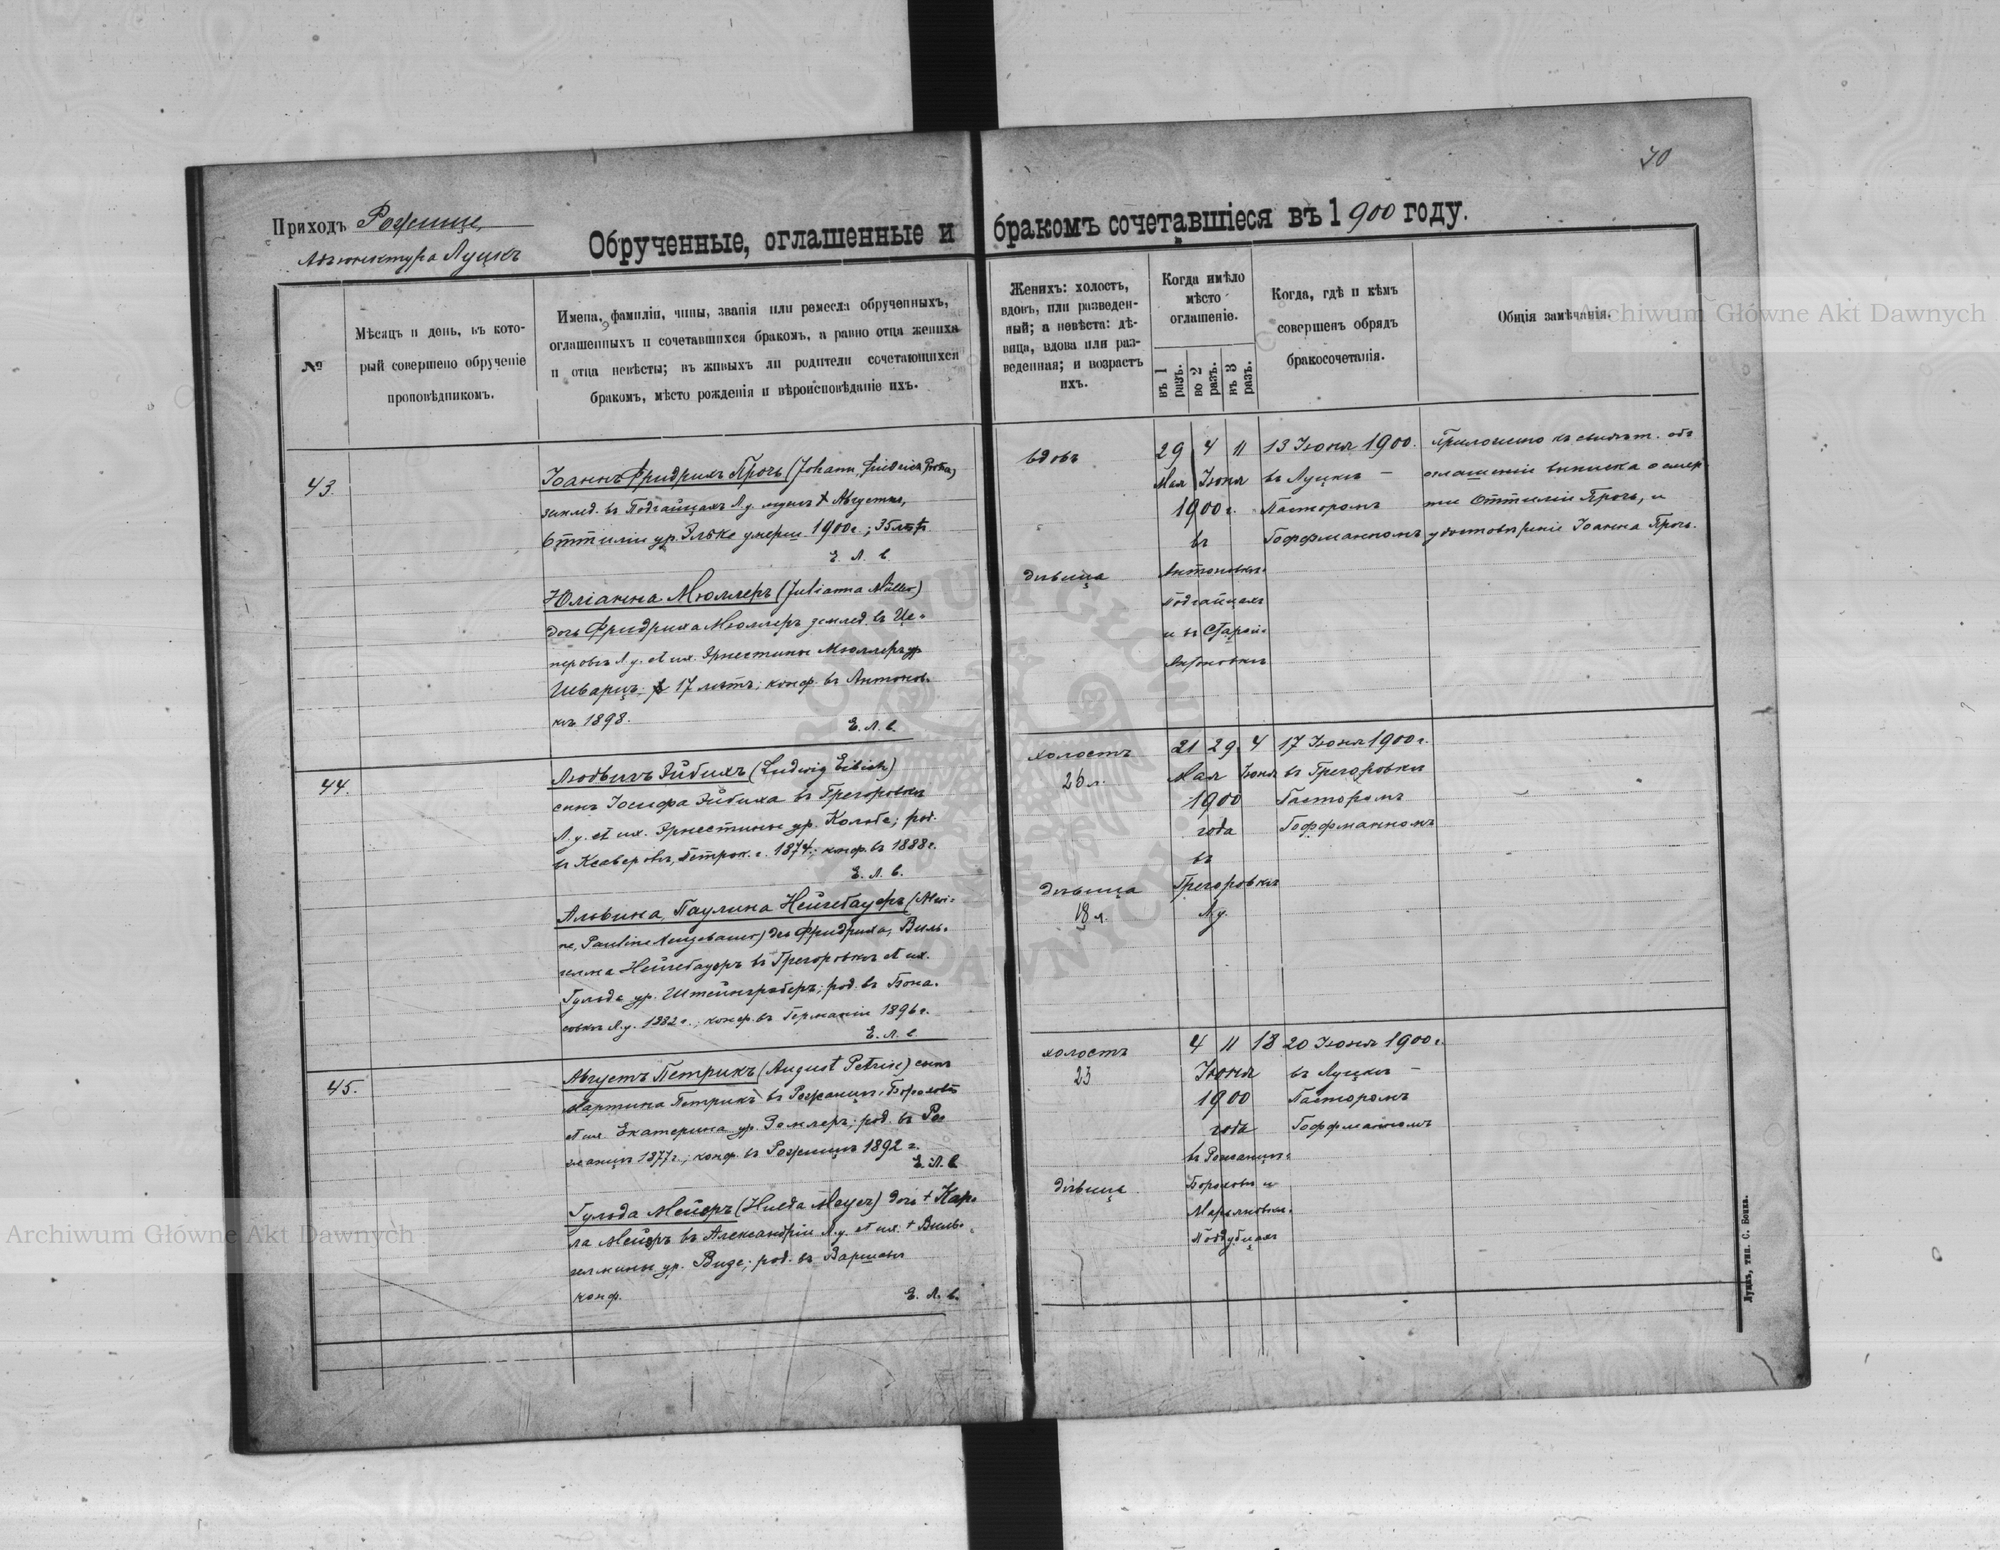 70
Приходъ Рожище,
Адъюнктура Луцкъ
Обрученные, оглашенные и бракомъ сочетавшіеся въ 1900 году.
№
Мѣсяцъ и день, въ кото-
рый совершено обрученіе
проповѣдникомъ.
Имена, фамиліи, чины, званія или ремесла обрученныхъ,
оглашенныхъ и сочетавшихся бракомъ, а равно отца жениха
и отца невѣсты; въ живыхъ ли родители сочетающихся
бракомъ, мѣсто рожденія и вѣроисповѣданіе ихъ.
Женихъ: холостъ,
вдовъ, или разведен-
ный; а невѣста: дѣ-
вица, вдова или раз-
веденная; и возрастъ
ихъ.
Когда имѣло
мѣсто
оглашеніе.
въ 1 разъ.
во 2 разъ.
въ 3 разъ.
Когда, гдѣ и кѣмъ
совершенъ обрядъ
бракосочетанія.
Общія замѣчанія.
43.
Іоаннъ Фридрихъ Прочь (Johann Friedrich
землед. въ Подгайцахъ Л. у. мужъ † Августы,
Оттиліи ур. Эльке умерш. 1900 г.; 35 лѣтъ
Е. Л. в
Юліанна Мюллеръ (Julianna Müller)
дочь Фридриха Мюллеръ землед. въ Це-
перовѣ Л у. и их. Эрнестины Мюллеръ ур.
Шварцъ; 17 лѣтъ; конф. въ Антонов-
кѣ 1898.
Е. Л. в.
вдовъ
дѣвица
29 4 11
Мая Іюня
1900 г.
въ
Антоновкѣ
Подгайцахъ
и въ Старой-
Антоновкѣ
13 Іюня 1900.
въ Луцкѣ —
Пасторомъ
Гоффманномъ
Приложено къ свидѣт. объ
оглашеніи выписка о смер-
ти Оттиліи Прочь, и
удостовѣреніе Іоанна Прочь.
44.
Людвигъ Эйбихъ (Ludwig Eibich)
сынъ Іосифа Эйбиха въ Грегоровкѣ
Л. у. и их. Эрнестины ур. Кольбе; род.
въ Ксаверовѣ, Петрок. г. 1874; конф. въ 1888 г.
Е. Л. в.
Альвина, Паулина Нейгебауеръ (Alwi-
ne, Pauline Neugebauer) дочь Фридриха, Виль-
гелма Нейгебауеръ въ Грегоровкѣ и их.
Гульда ур. Штейнгреберъ; род. въ
Л. у. 1882 г.; конф. въ Германіи 1896 г.
Е. Л. в.
холостъ
26 л.
дѣвица
18 л.
21 29 4
Мая Іюня
1900
года
въ
Грегоровкѣ
Л. у.
17 Іюня 1900 г.
въ Грегоровкѣ
Пасторомъ
Гоффманномъ
45.
Августъ Петрикъ (August Petrik) сынъ
Мартина Петрикъ въ
и их. Екатерина ур. Землеръ; род. въ Ро-
жанцѣ 1877 г.; конф. въ Рожищѣ 1892 г.
Е. Л. в
Гульда Мейеръ (Hulda Meyer) дочь † Кар-
ла Мейеръ въ Александріи Л. у. и их. † Виль-
гелмины ур. Виде; род. въ Варшавѣ
конф.
Е. Л. в.
холостъ
23
дѣвица
4 11 18
Іюня
1900
года
20 Іюня 1900 г.
въ Луцкѣ —
Пасторомъ
Гоффманномъ
Луцкъ, тип. С. Бонка.
Archiwum Główne Akt Dawnych
Archiwum Główne Akt Dawnych